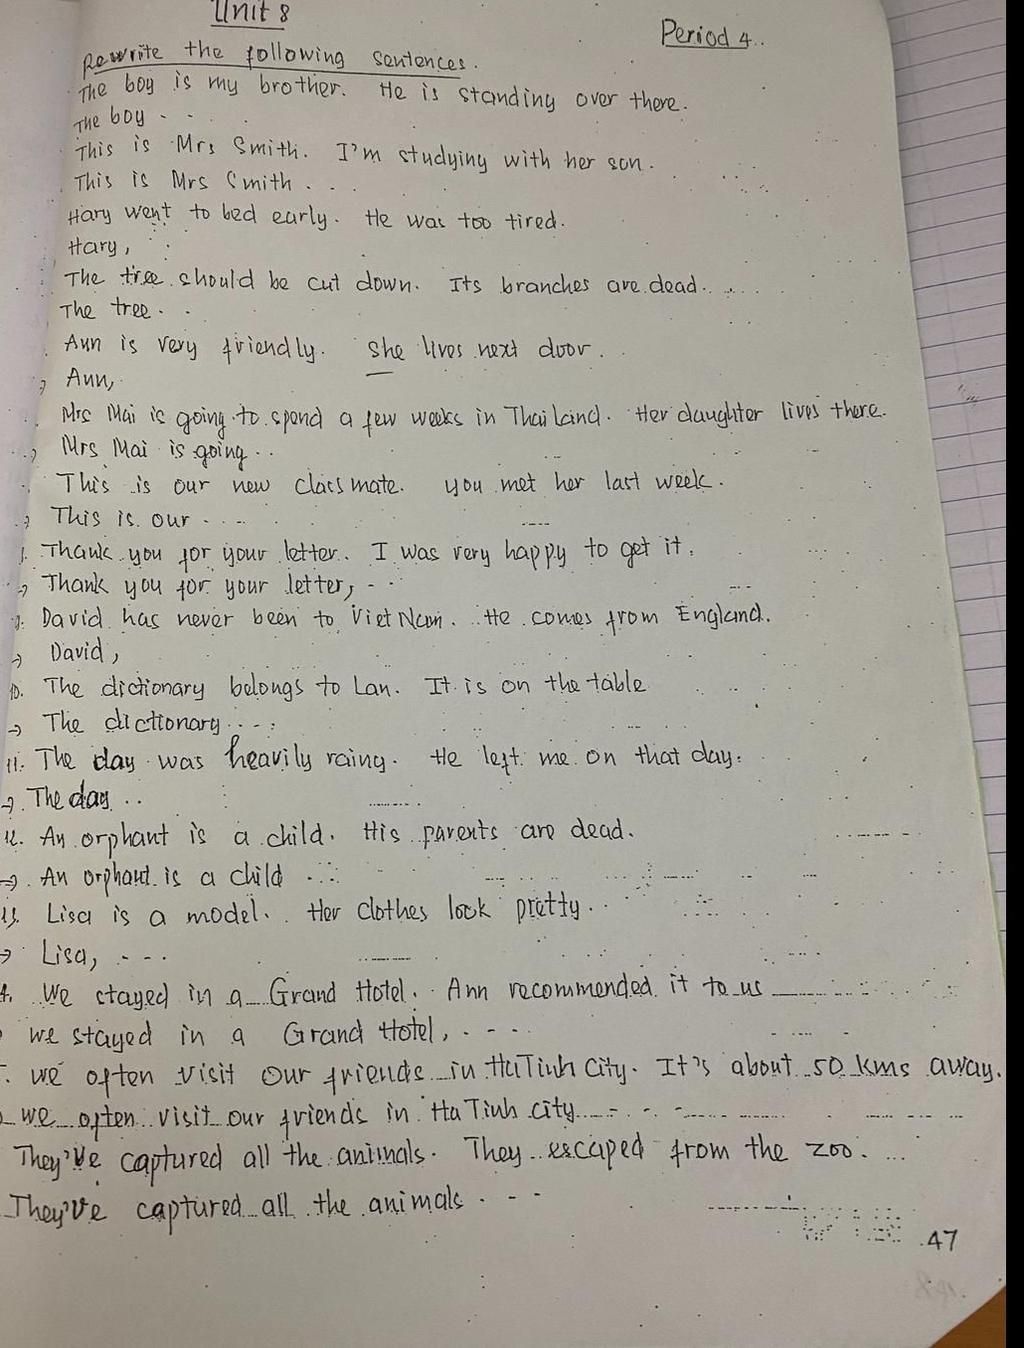 Unit 8
Period 4..
Rewrite the following sentences.
The boy is my brother. He is standing over there.
The boy - - .
This is Mrs Smith. I'm studying with her son.
This is Mrs Smith . . .
Hary went to bed early. He was too tired.
Hary,
The tree should be cut down. Its branches are dead.
The tree. . .
Ann is very friendly. She lives next door.
Ann,
Mrs Mai is going to spend a few weeks in Thailand. Her daughter lives there.
Mrs Mai is going. .
This is our new classmate. you met her last week.
→ This is our - - - -
Thank you for your letter. I was very happy to get it.
→ Thank you for your letter, - - -
David has never been to Viet Nam. He comes from England.
→ David,
10. The dictionary belongs to Lan. It is on the table
→ The dictionary - - - .
11. The day was heavily raing. He left me on that day.
→ The day . .
12. An orphant is a child. His parents are dead.
→ An orphant is a child . . .
13. Lisa is a model. Her clothes look pretty.
→ Lisa, - - -
4. We stayed in a Grand Hotel. Ann recommended it to us
we stayed in a Grand Hotel, - - - -
we often visit our friends in Ha Tinh City. It's about 50 kms away.
we often visit our friends in Ha Tinh city - - -
They've captured all the animals. They escaped from the zoo.
They've captured all the animals - - -
47